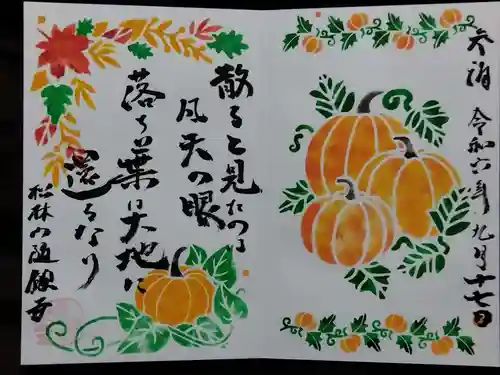 奉拝 令和六年九月十七日
散ると見たのは
凡夫の眼
落ち葉は大地に
還るなり
松林山随願寺